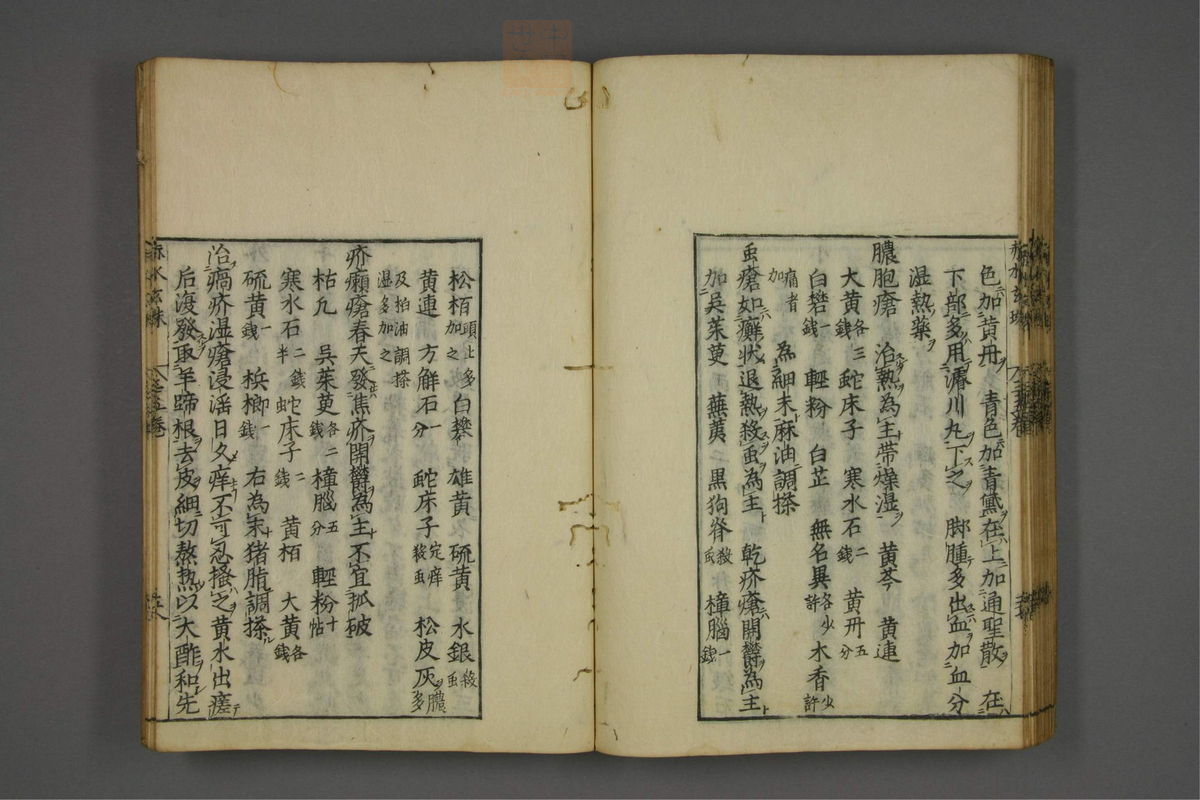 色加黄丹青色加青黛在上加通聖散在
下部多用濬川丸下之脚腫多出血加血分
湿熱藥
膿胞瘡治熱為主帶燥湿黄芩黄連
大黄各三錢蛇床子寒水石二錢黄丹五分
白礬一錢輕粉白芷無名異各少許木香少許
痛者加為細末麻油調搽
虫瘡如癬状退熱殺虫為主乾疥瘡開欝為主
加吳茱萸二蕪荑二黒狗脊殺虫樟腦一錢
松栢頭上多加之白礬雄黄硫黄水銀殺虫
黄連方解石一分蛇床子定痒殺虫松皮灰膿多
湿多加之及拍油調搽
疥癩瘡春天發焦疥開欝為主不宜抓破
枯九吳茱萸各二錢樟腦五分輕粉十帖
寒水石二錢半蛇床子二錢黄栢大黄各錢
硫黄一錢梹榔一錢右為末猪脂調搽
治瘑疥湿瘡浸淫日久痒不可忍搔之黄水出瘥
后復發取羊蹄根去皮細切熬熱以大酢和先